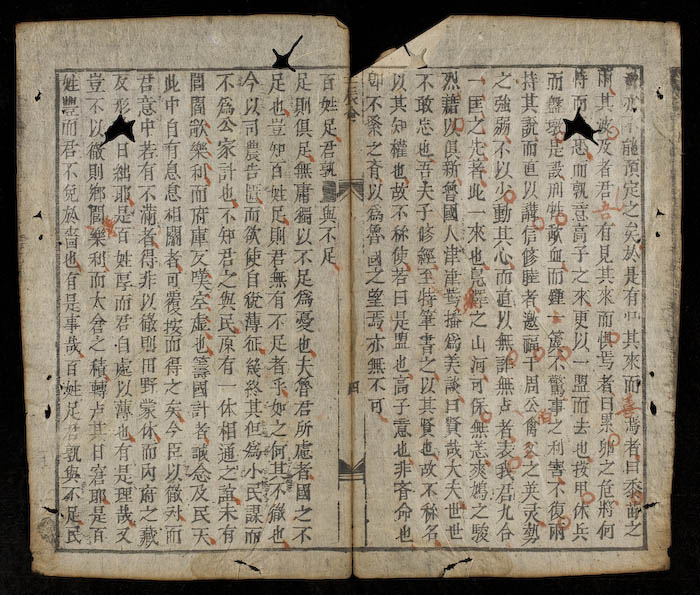 亦不能預定之矣於是有中其來而喜焉者曰黍苗之
雨其波及者君吾有見其來而懼焉者曰累卵之危將何
恃而恐而孰意高子之來更以一盟而去也我甲休兵
而盤是設刑牲歃血而鍾虡不驚事之利害不復兩
持其說而直以講信修睦者邀福于周公之灵勢
之強弱不以少動其心而直以無詐無者表我君九合
一匡之先著此一來也鳧繹之山河可保無恙爽鳩之駿
烈藉以俱新魯國人津津焉播為美談曰賢哉大夫世世
不敢忘也吾夫子修經至特筆書之以其賢也故不称名
以其知權也故不称使若曰是盟也高子意也非齊命也
即不繫之齊以為魯國之望焉亦無不可
四
百姓足君孰與不足
足則俱足無庸獨以不足為憂也夫魯君所慮者國之不
足也豈知百姓足則君無有不足者乎如之何其不徹也
今以司農告匱而欲使自貶薄征幾終其但為小民謀而
不為公家計也不知君之與民原有一体相通之誼未有
閭閻歌樂利而府庫反嘆空虛也籌國計者誠念及民天
此中自有息息相關者可覆按而得之矣今臣以徹对而
君意中若有不滿者得非以徹則田野蒙休而內府之藏
反形日絀耶是百姓厚而君自處以薄也有是理哉又
豈不以徹則鄉閭樂利而太倉之積轉其日窘耶是百
姓豐而君不免於嗇也有是事哉百姓足君孰與不足民